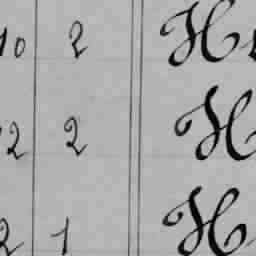 10 2 H
2 2 H
2 1 H